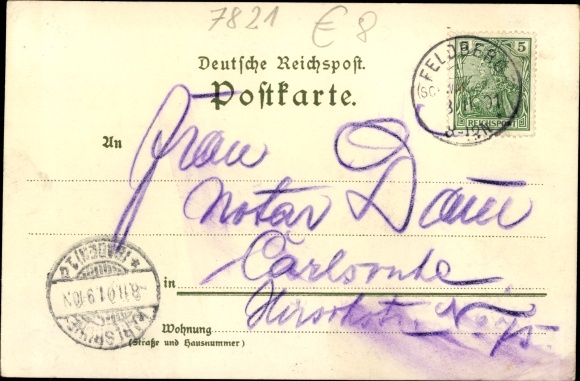 7821 € 8
Deutsche Reichspost.
Postkarte.
FELDBERG
5
REICHSPOST
An Frau
Notar Daur
in Carlsruhe
Hirschstr. No
Wohnung
(Straße und Hausnummer)
KARLSRUHE
(BADEN)
8.11.01.9-10